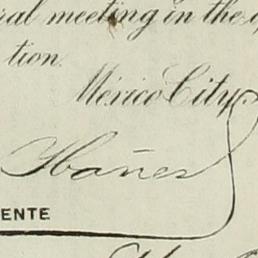 ral meeting in the
tion.
Mexico City,
Ibañes
ENTE